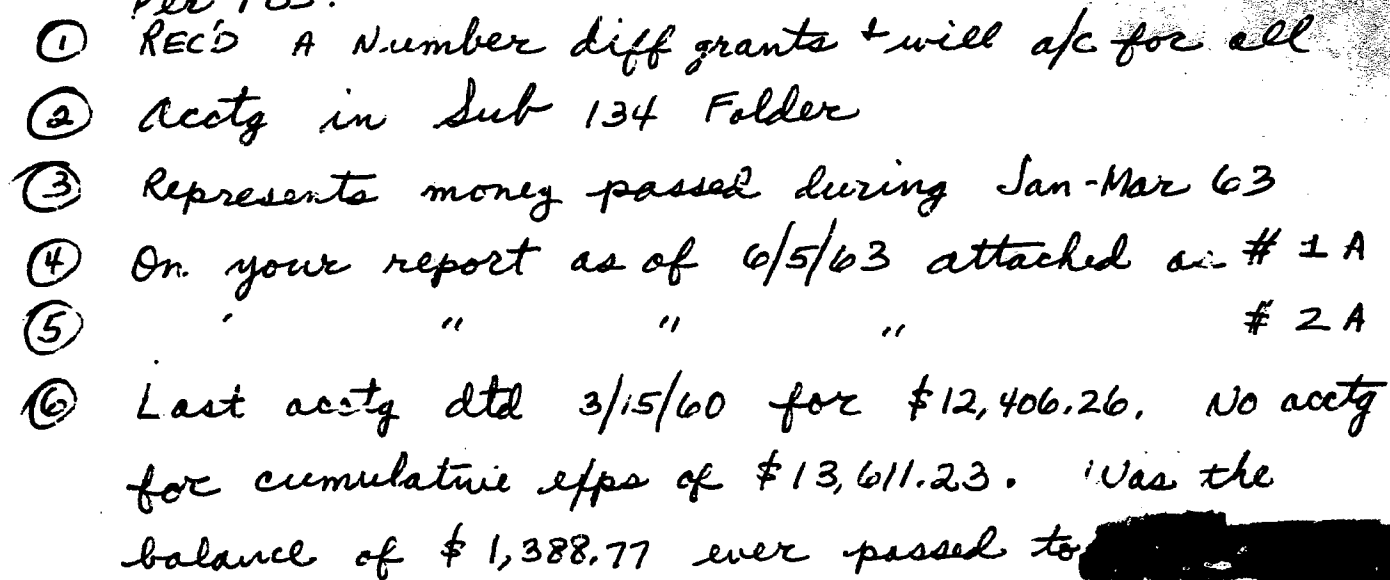 Per
① REC'D A Number diff grants + will a/c for all
② Acctg in Sub 134 Folder
③ Represents money passed during Jan-Mar 63
④ On your report as of 6/5/63 attached as # 1 A
⑤ " " " " # 2 A
⑥ Last acctg dtd 3/15/60 for $12,406.26. No acctg
for cumulative exps of $13,611.23. Was the
balance of $1,388.77 ever passed to